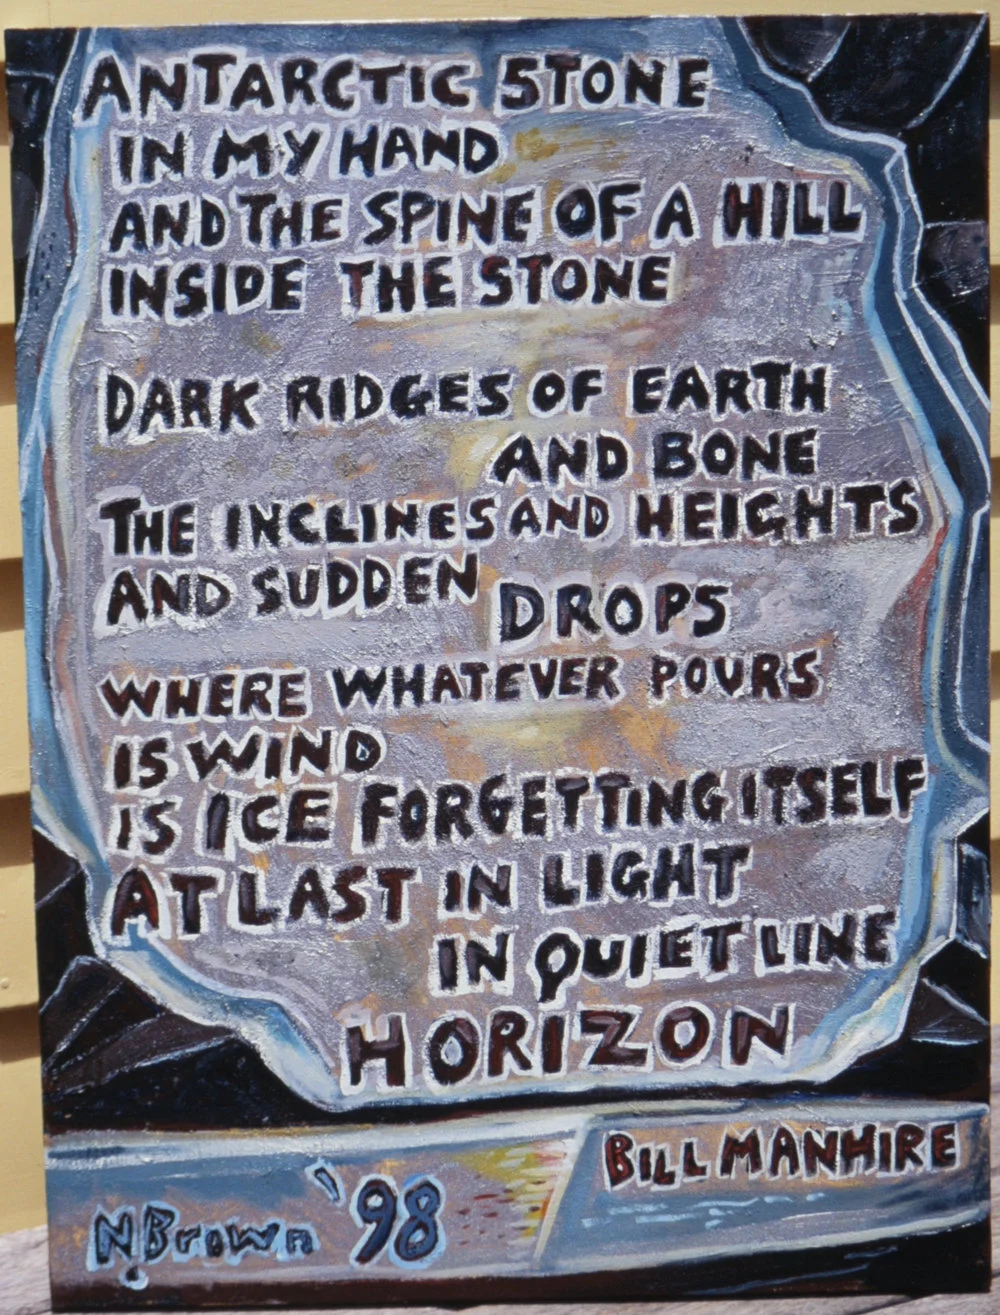 ANTARCTIC STONE
IN MY HAND
AND THE SPINE OF A HILL
INSIDE THE STONE
DARK RIDGES OF EARTH
AND BONE
THE INCLINES AND HEIGHTS
AND SUDDEN DROPS
WHERE WHATEVER POURS
IS WIND
IS ICE FORGETTING ITSELF
AT LAST IN LIGHT
IN QUIET LINE
HORIZON
BILL MANHIRE
N.Brown '98